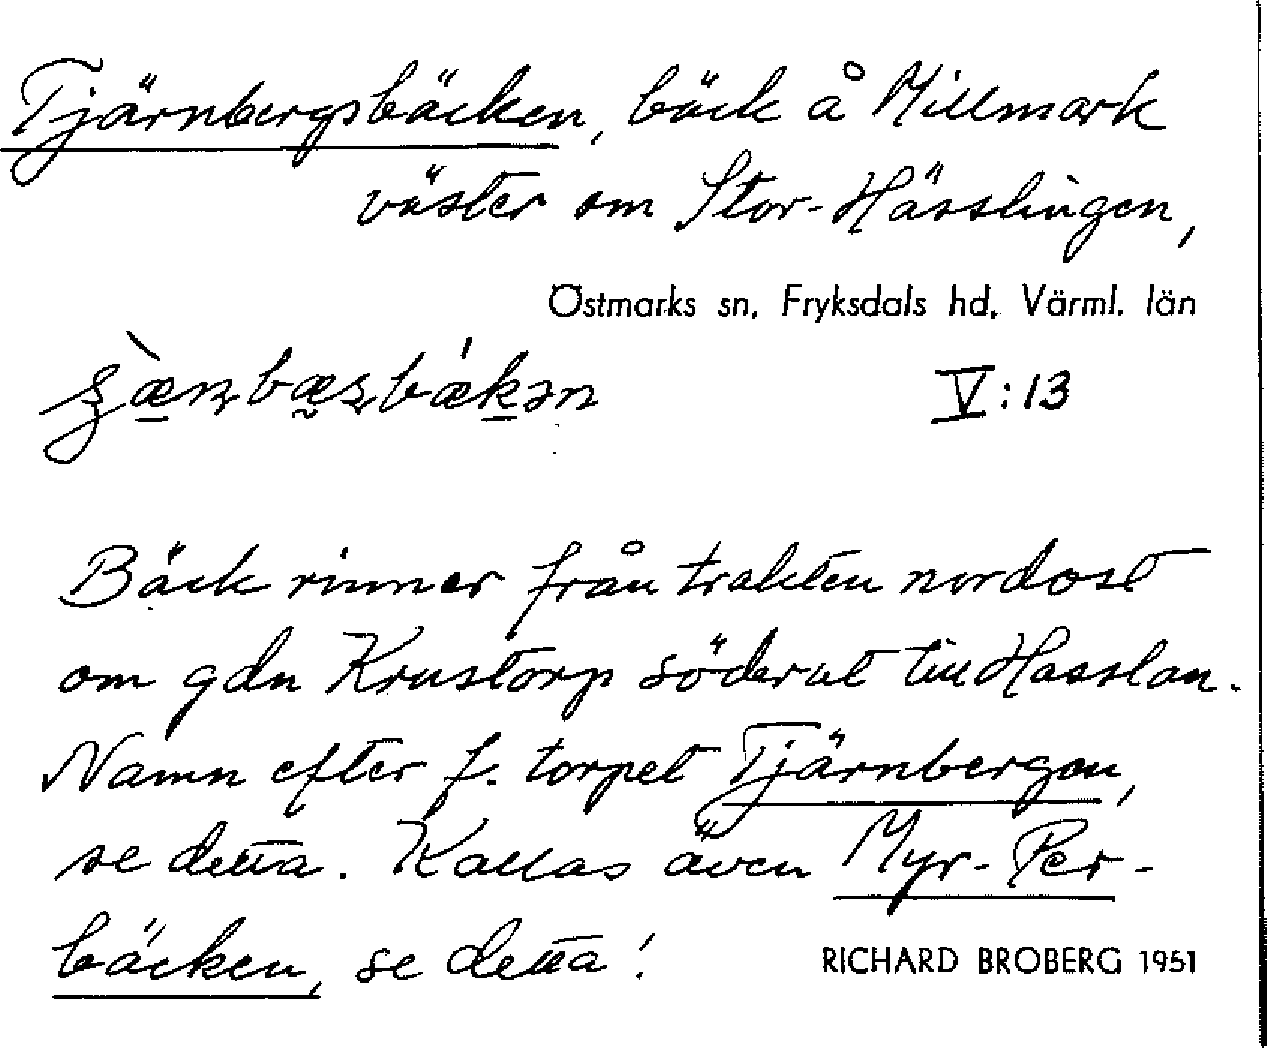 Tjärnbergsbäcken, bäck å Millmark
väster om Stor-Hässlingen,
Östmarks sn, Fryksdals hd, Värml. län
V:13
Bäck rinner från trakten nordost
om gdn Krustorp söderut till Hasslan.
Namn efter f. torpet Tjärnbergen,
se detta. Kallas även Myr-Per-
bäcken, se detta!
RICHARD BROBERG 1951